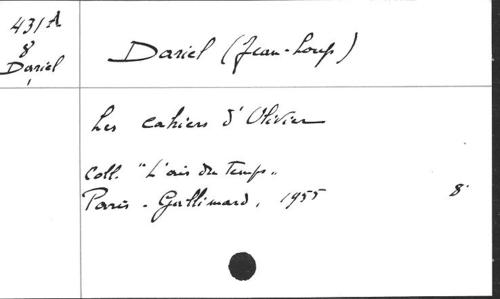 431A
8
Dariel
Dariel (Jean-Loup)
Les cahiers d'Olivier
Coll. "L'air du Temps"
Paris - Gallimard, 1955 8°